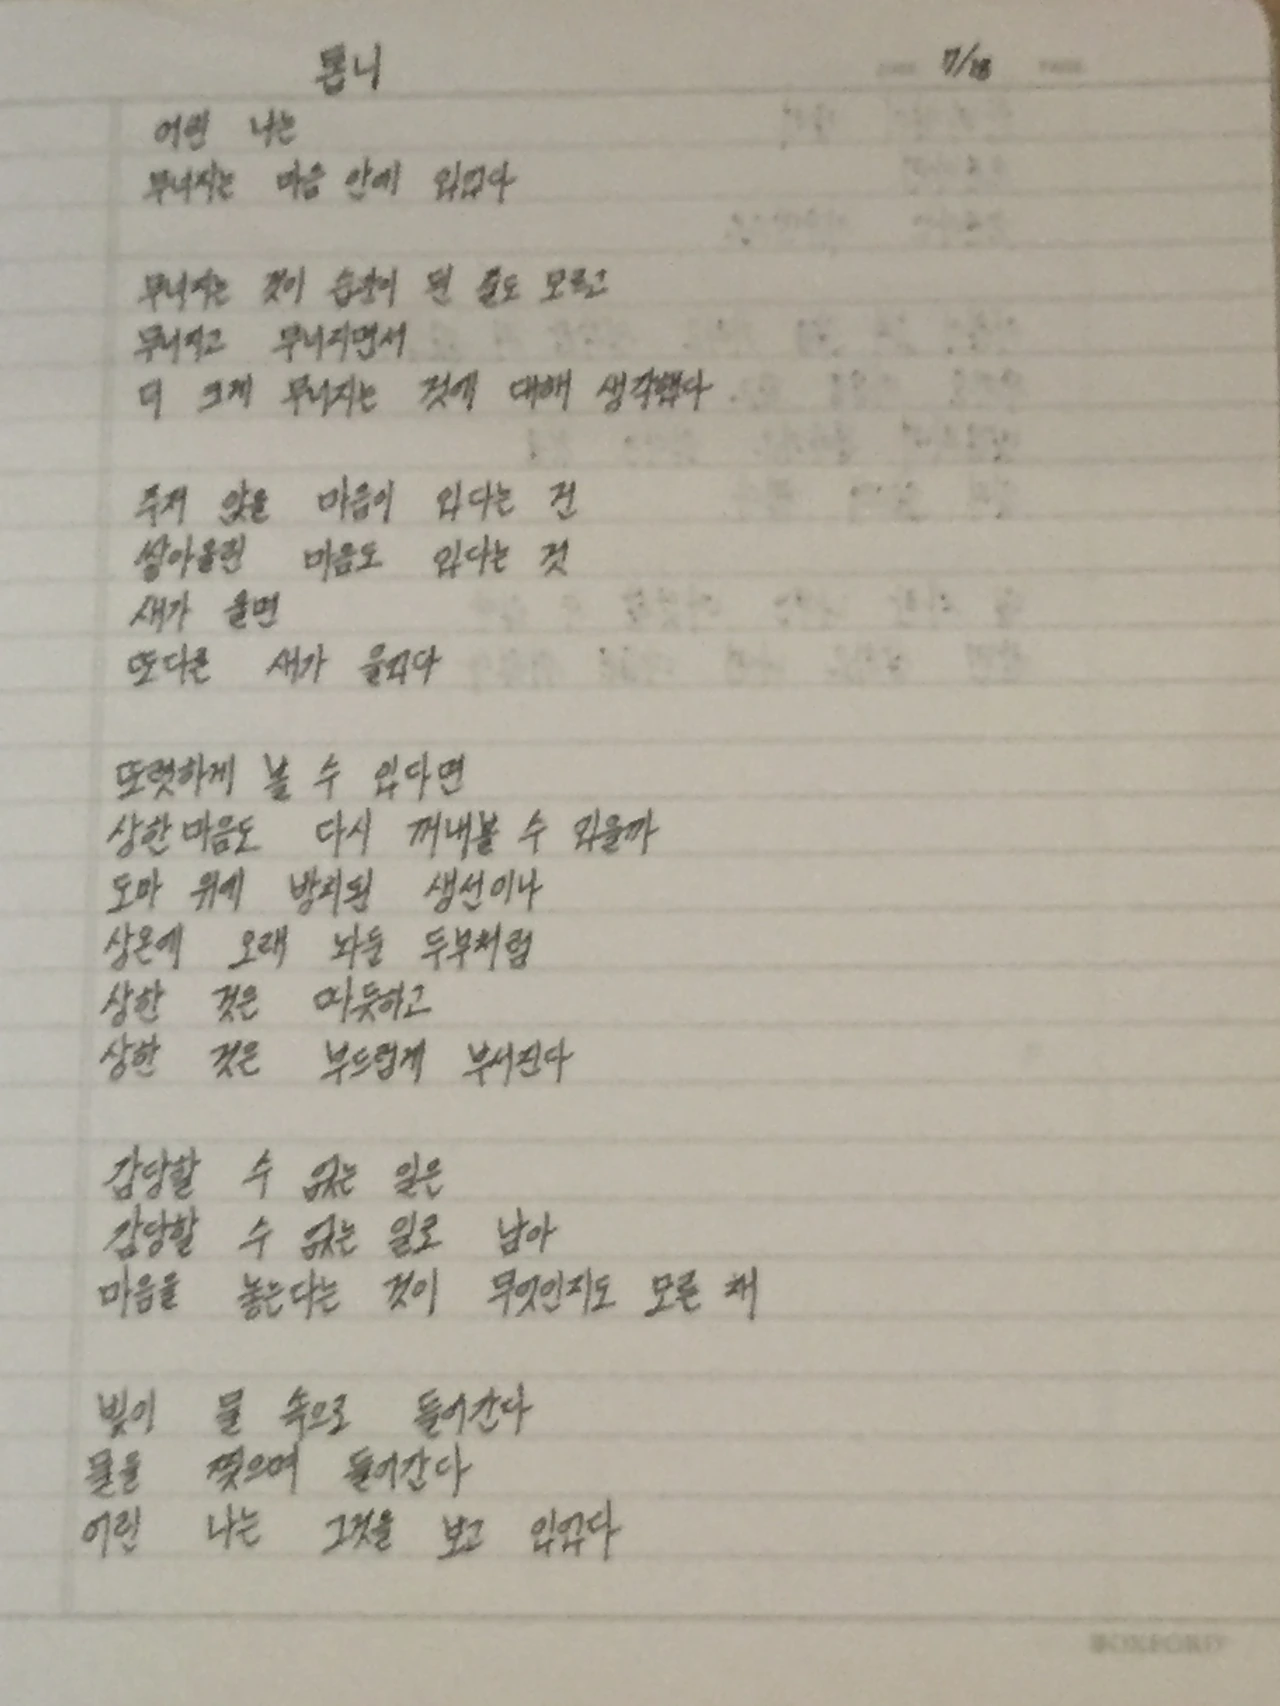 톱니
7/18
어린 나는
무너지는 마음 안에 있었다
무너지는 것이 습관이 된 줄도 모르고
무너지고 무너지면서
더 크게 무너지는 것에 대해 생각했다
주저 앉을 마음이 있다는 건
쌓아올린 마음도 있다는 것
새가 울면
또다른 새가 울었다
또렷하게 볼 수 있다면
상한 마음도 다시 꺼내볼 수 있을까
도마 위에 방치된 생선이나
상온에 오래 놔둔 두부처럼
상한 것은 따듯하고
상한 것은 부드럽게 부서진다
감당할 수 없는 일은
감당할 수 없는 일로 남아
마음을 놓는다는 것이 무엇인지도 모른 채
빛이 물 속으로 들어간다
물을 찢으며 들어간다
어린 나는 그것을 보고 있었다
OXFORD